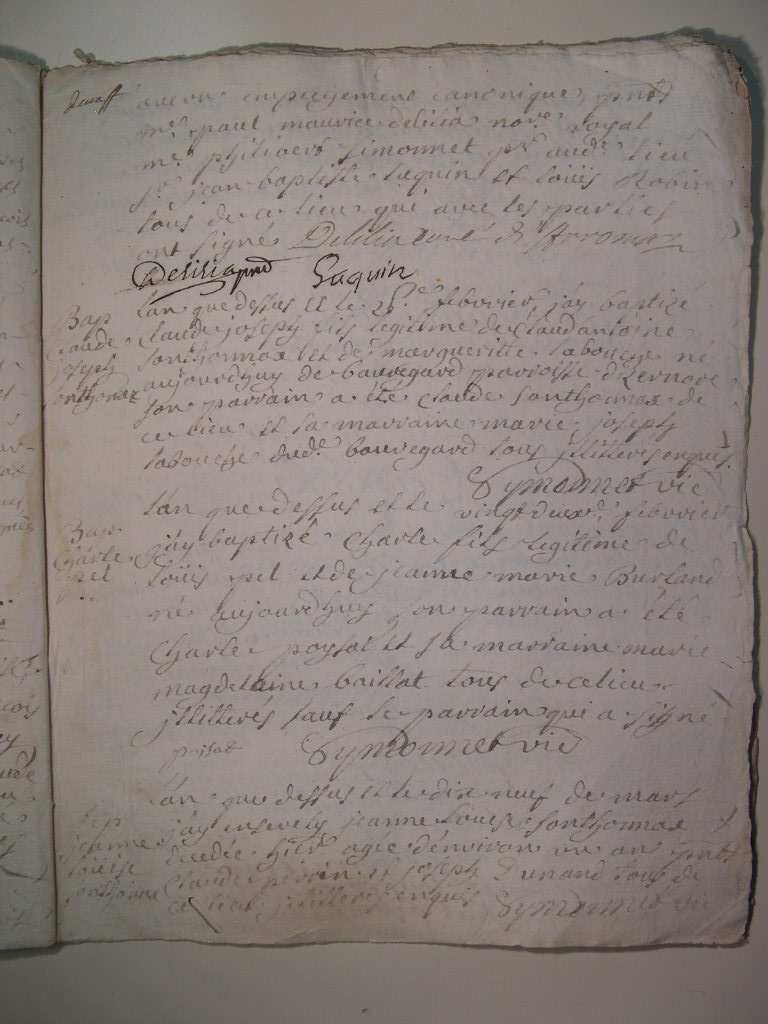 aucun empechement canonique, pnts
mr. paul maurice delicia nore. royal
mr. simonnet pr. aud. lieu
sr. jean baptiste Guquin et loüis Robin
tous de ce lieu qui avec les parties
ont signé Delilia curé d'Arromas
Delilia pnt Guquin
Bap
Claude
joseph
sonthonnax
lan que dessus et le fevrier, jay baptizé
Claude joseph fils legitime de Claud antoine
sonthonnax et de margueritte labouche né
aujourdhuy de bauvegard parroisse
son parrain a été Claude sonthonnax de
ce lieu et la marraine marie josephe
labouche dud. bauvegard tous jllitterés enquis
Symonnet vic
Bap
Charle
pel
lan que dessus et le vingt deux fevrier
jay baptizé Charle fils legitime de
loüis pel et de jeanne marie Burland
né aujourdhuy son parrain a été
Charle poysat et sa marraine marie
magdelaine baillat tous de ce lieu
jllitterés sauf le parrain qui a signé
poisat Symonnet vic
Sep
jeanne
loüise
sonthonnax
lan que dessus et le dix neuf de mars
jay ensevely jeanne loüise sonthonnax
decedée hier agée denviron un an pnts
Claude perrin et joseph Dunand tous de
ce lieu jllitterés enquis Symonnet vic